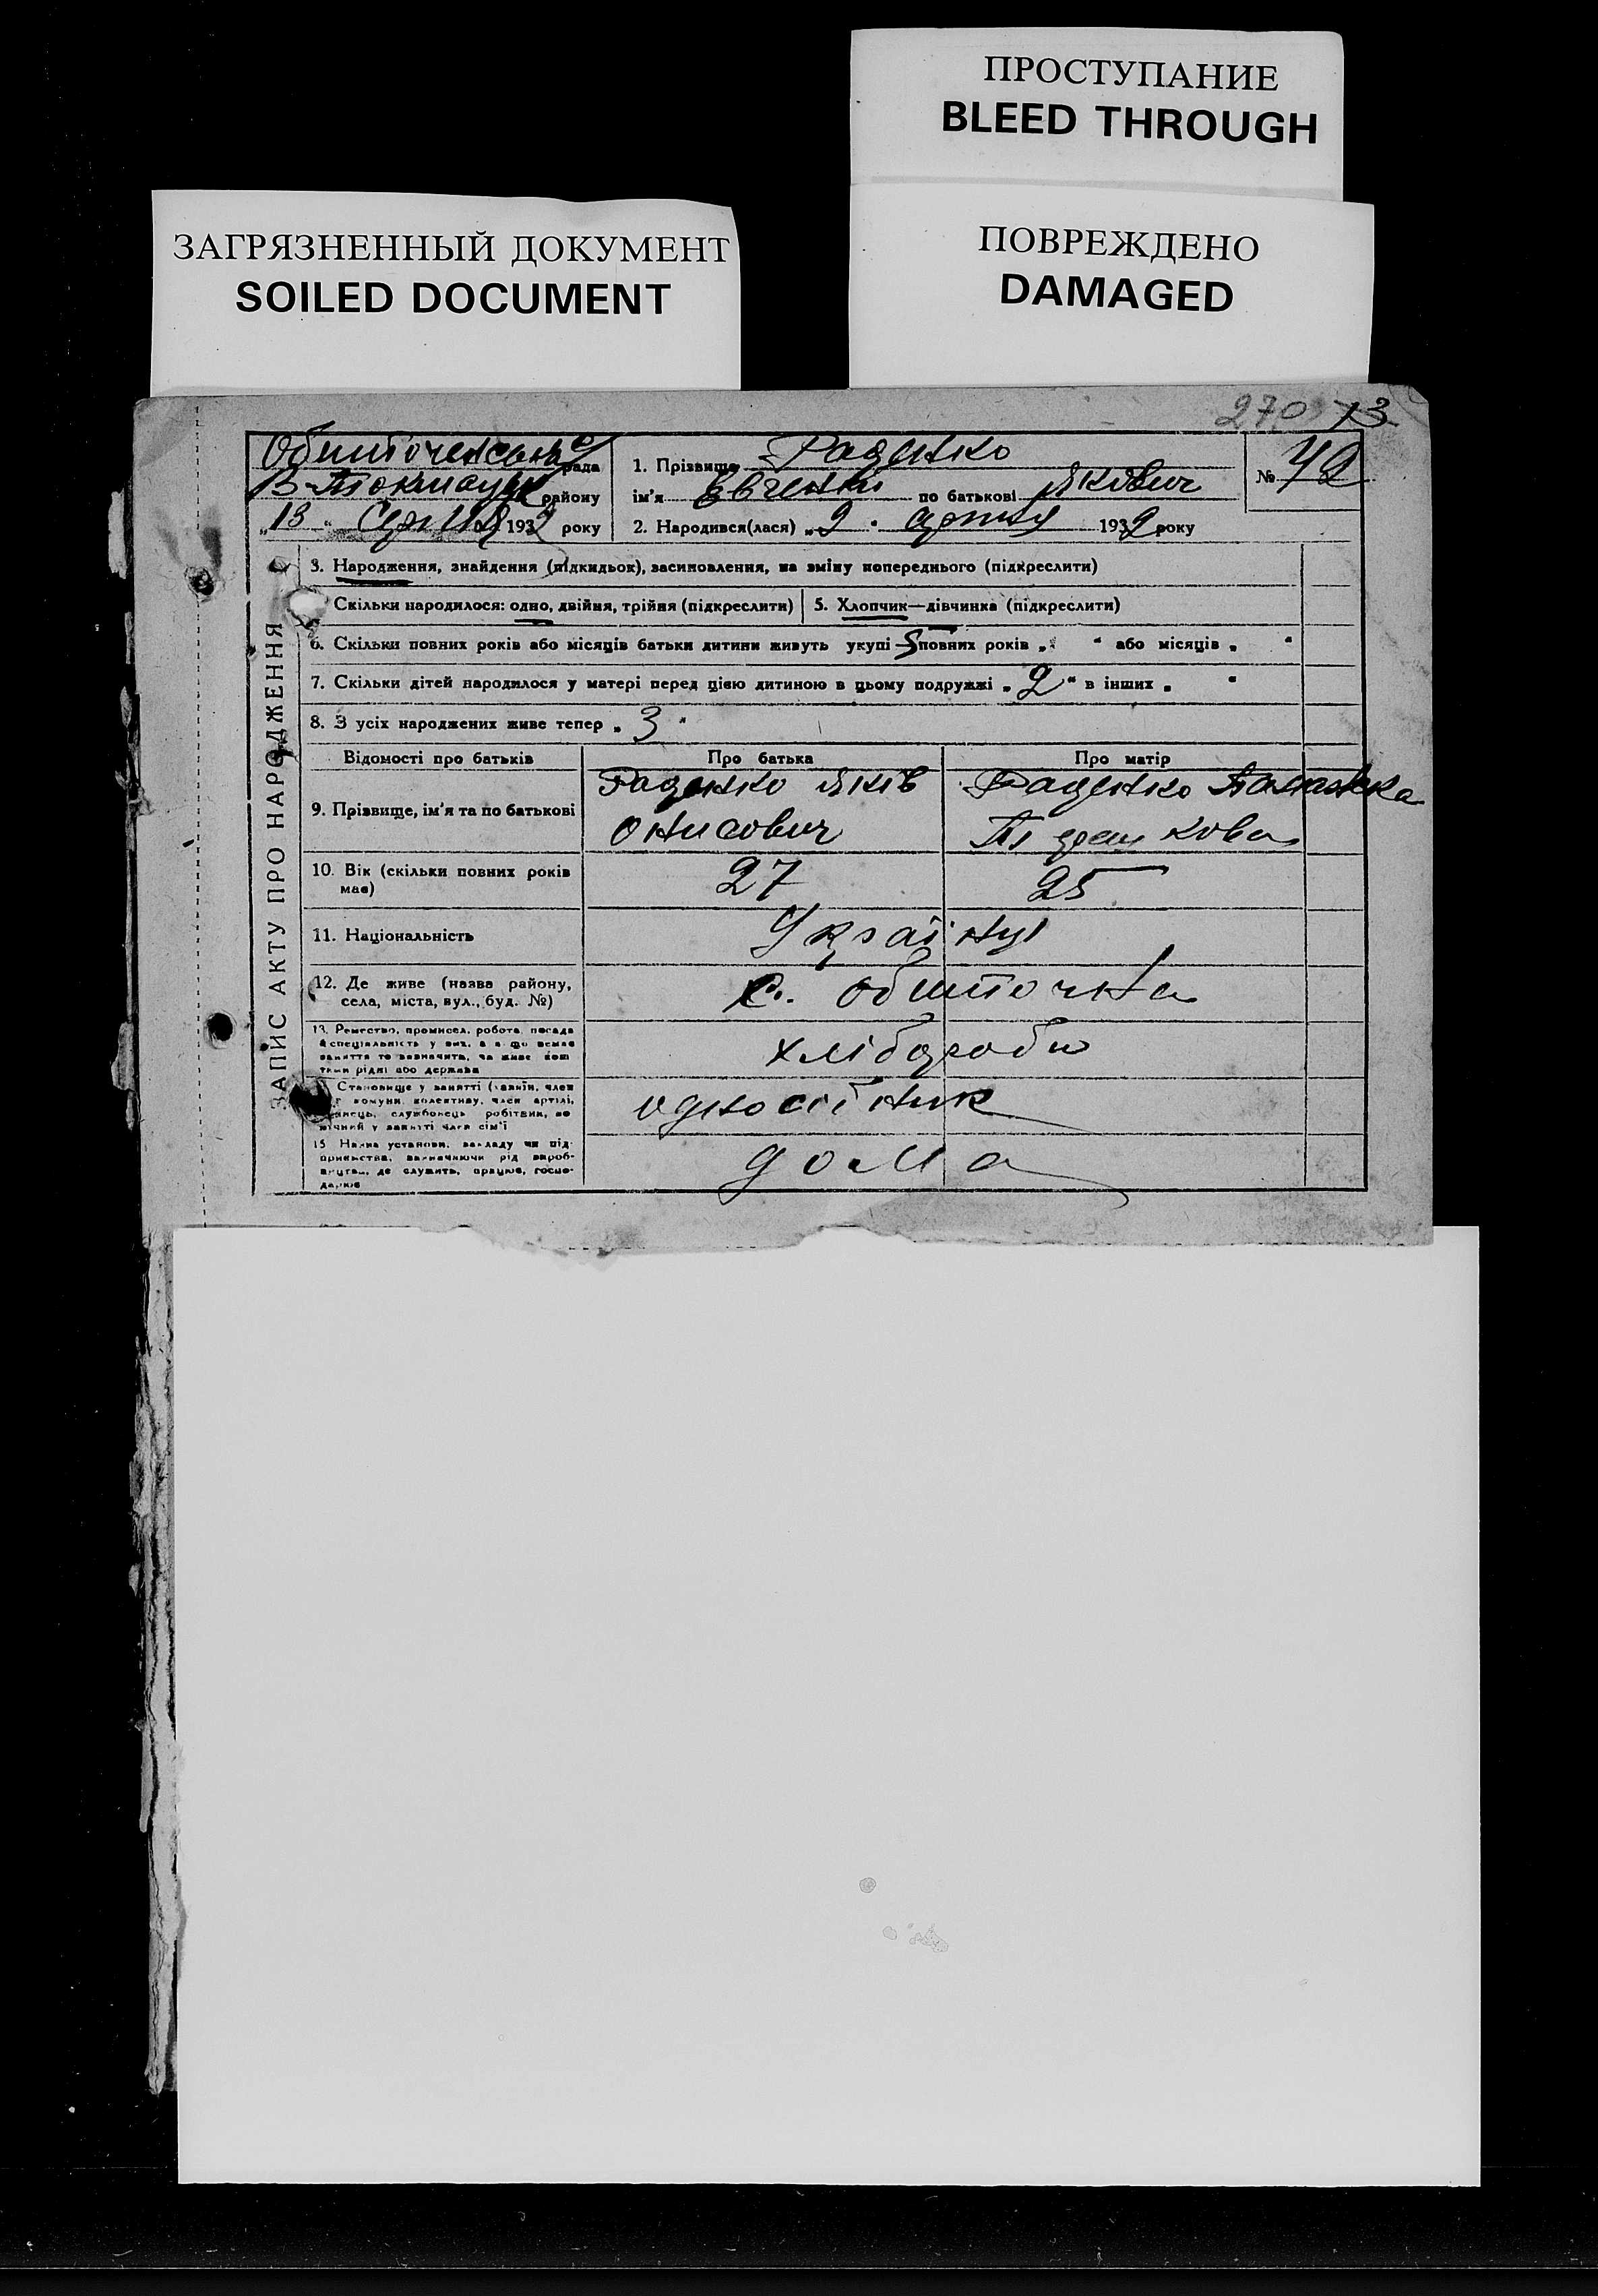 ПРОСТУПАНИЕ
BLEED THROUGH
ЗАГРЯЗНЕННЫЙ ДОКУМЕНТ
SOILED DOCUMENT
ПОВРЕЖДЕНО
DAMAGED
270 13
Обиточенська рада
В-Токмацьк району
"13" Серпня 1932 року
1. Прізвище Раденко
ім'я Євгеній по батькові Якович
2. Народився(лася) "2" серпня 1932 року
№ 42
ЗАПИС АКТУ ПРО НАРОДЖЕННЯ
3. Народження, знайдення (підкидьок), засиновлення, на зміну попереднього (підкреслити)
Скільки народилося: одно, двійня, трійня (підкреслити) 5. Хлопчик—дівчинка (підкреслити)
6. Скільки повних років або місяців батьки дитини живуть укупі 5 повних років " " або місяців " "
7. Скільки дітей народилося у матері перед цією дитиною в цьому подружжі "2" в інших " "
8. З усіх народжених живе тепер "3"
Відомості про батьків Про батька Про матір
9. Прізвище, ім'я та по батькові
Раденко Яків
Онисович
Раденко
10. Вік (скільки повних років
має)
27 25
11. Національність
Українці
12. Де живе (назва району,
села, міста, вул., буд. №)
с. Обиточна
13. Ремество, промисел, робота, посада
й спеціальність у них, а якщо немає
заняття то зазначити, чи живе кош
тами рідні або держави
хлібороби
Становище у занятті (хазяїн, член
комуни, колективу, член артілі,
службовець робітник, по
мічний у занятті член сім'ї
односібник
15. Назва установи, закладу чи під-
приємства, зазначаючи рід вироб-
ництва, де служить, працює, госпо-
дарює
дома